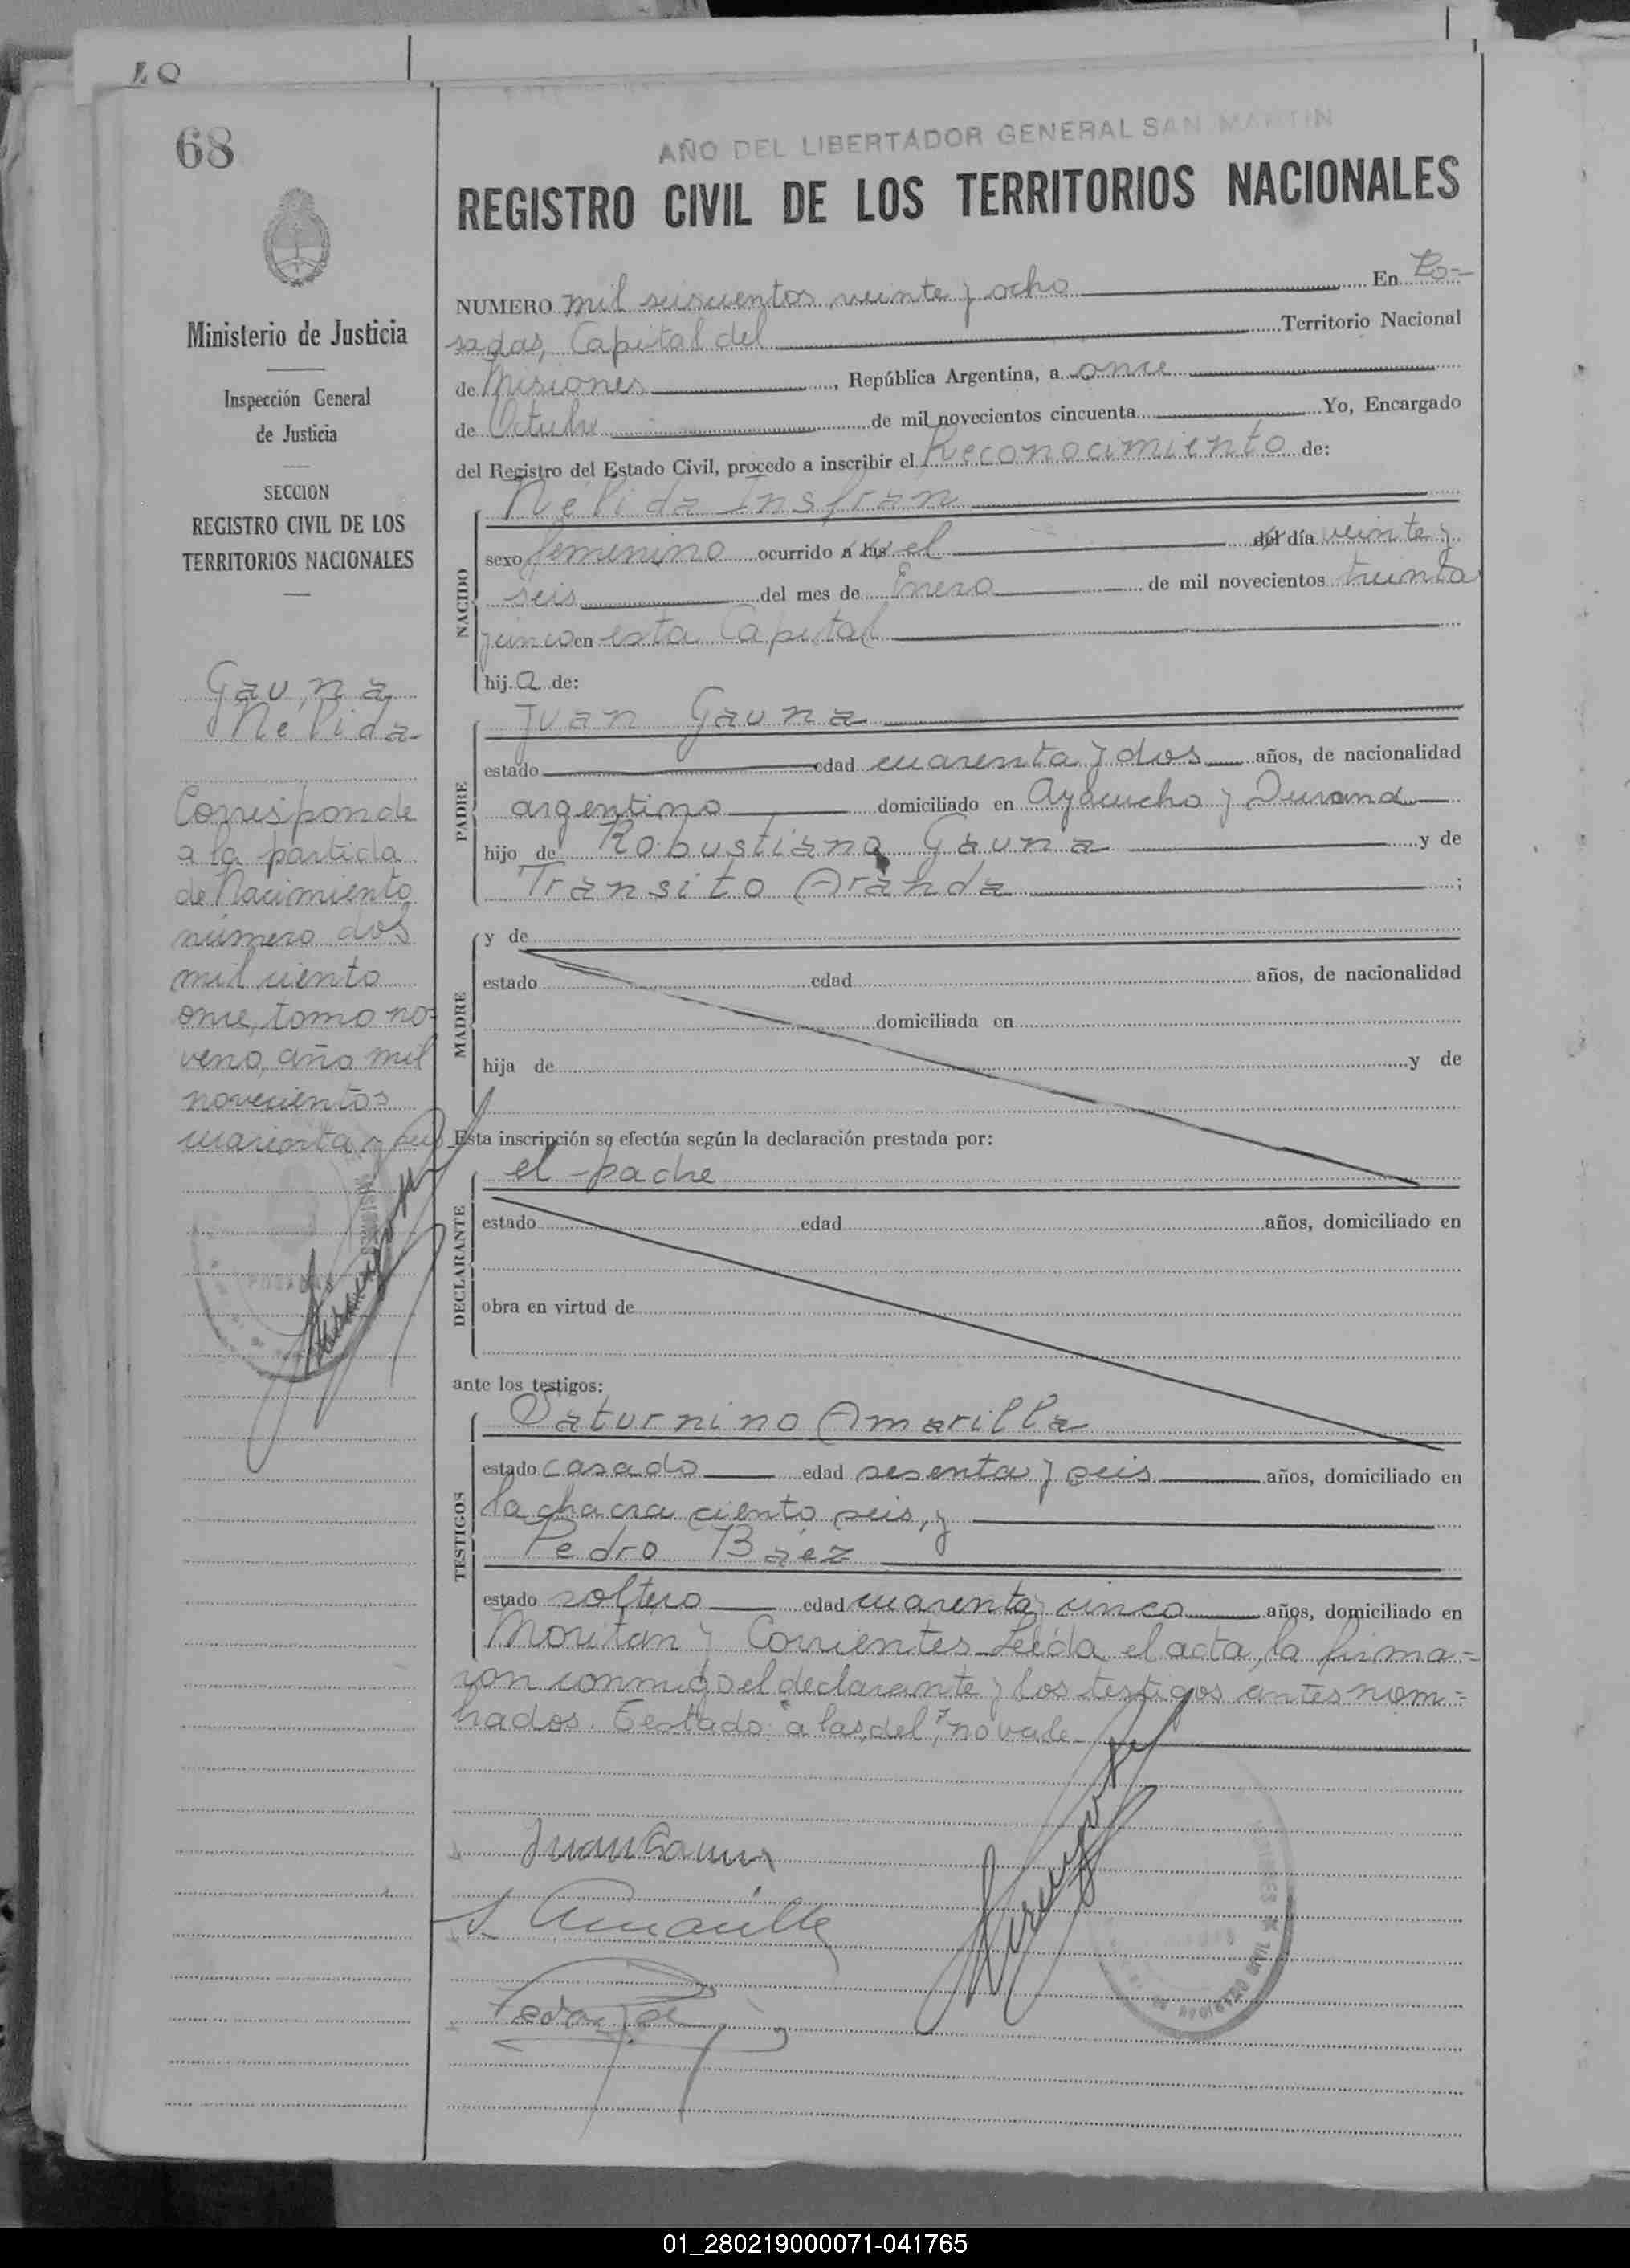 68
Ministerio de Justicia
Inspección General
de Justicia
SECCION
REGISTRO CIVIL DE LOS
TERRITORIOS NACIONALES
Gauna
Nelida
Corresponde
a la partida
de Nacimiento
número dos
mil ciento
once, tomo no-
veno, año mil
novecientos
cuarenta y seis
AÑO DEL LIBERTADOR GENERAL SAN MARTIN
REGISTRO CIVIL DE LOS TERRITORIOS NACIONALES
NUMERO mil seiscientos veinte y ocho En Po-
sadas, Capital del Territorio Nacional
de Misiones, República Argentina, a once
de Octubre de mil novecientos cincuenta Yo, Encargado
del Registro del Estado Civil, procedo a inscribir el Reconocimiento de:
NACIDO
Nelida Insfran
sexo femenino ocurrido a las el del día veinte y
seis del mes de Enero de mil novecientos treinta
y cinco en esta Capital
hija de:
PADRE
Juan Gauna
estado edad cuarenta y dos años, de nacionalidad
argentino domiciliado en Ayacucho y Durand
hijo de Robustiano Gauna y de
Transito Aranda ;
MADRE
y de
estado edad años, de nacionalidad
domiciliada en
hija de y de
Esta inscripción se efectúa según la declaración prestada por:
DECLARANTE
el padre
estado edad años, domiciliado en
obra en virtud de
ante los testigos:
TESTIGOS
Saturnino Amarilla
estado casado edad sesenta y seis años, domiciliado en
la chacra ciento seis, y
Pedro Báez
estado soltero edad cuarenta y cinco años, domiciliado en
Moritan y Corrientes. Leída el acta, la firma-
ron conmigo el declarante y los testigos antes nom-
brados. Testado: "a las, del", no vale.
Juan Gauna
S. Amarilla
Pedro Báez
01_280219000071-041765